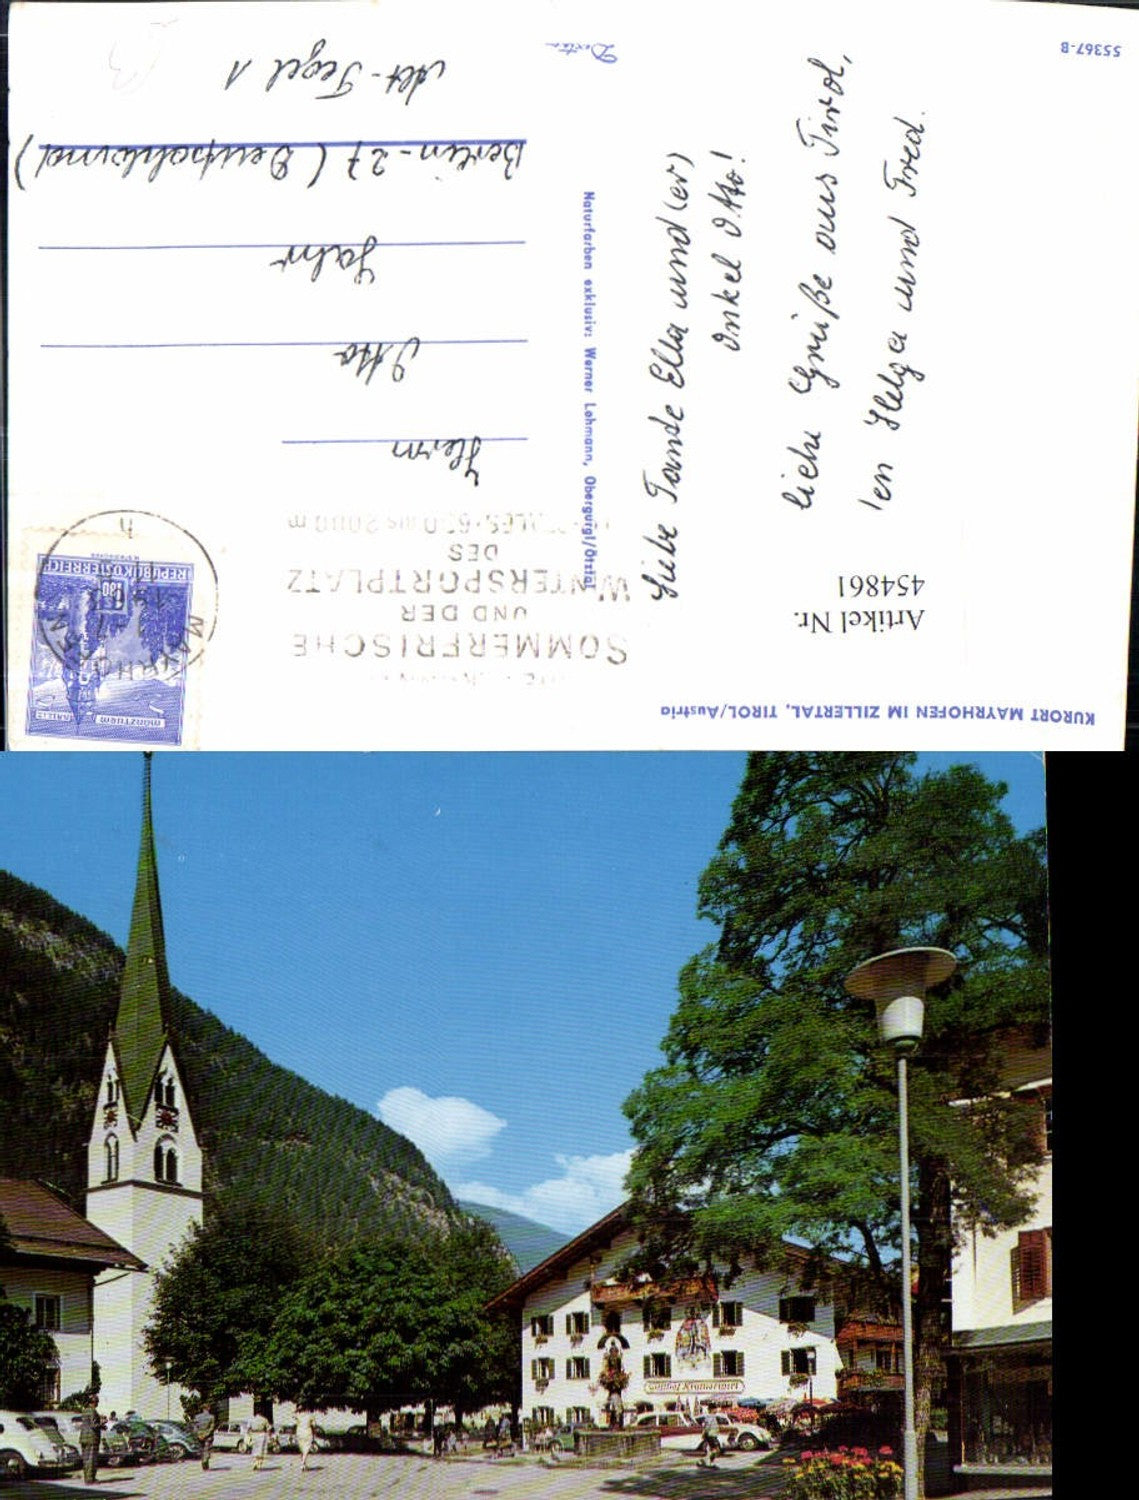 KURORT MAYRHOFEN IM ZILLERTAL, TIROL/Austria
Artikel Nr.
454861
SOMMERFRISCHE
UND DER
WINTERSPORTPLATZ
DES
REPUBLIK ÖSTERREICH
Münzturm
Liebe Tante Ella und (er)
Onkel Otto!
liebe Grüße aus Tirol,
Helga und Fred.
Naturfarben exklusiv: Werner Lehmann, Obergurgl/Ötztal
Herrn
Otto
Jahr
Berlin - 27 (Deutschland)
Alt-Tegel 1
55367-B
Gasthof Kramerwirt